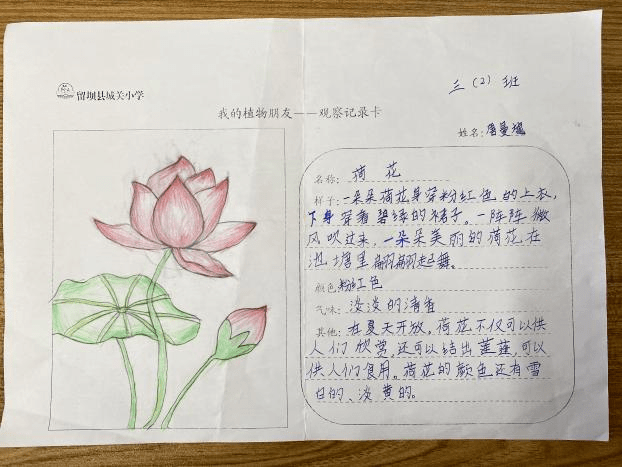 留坝县城关小学
三（2）班
我的植物朋友——观察记录卡
姓名：唐曼
名称：荷花
样子：一朵朵荷花身穿粉红色的上衣，
下身穿着碧绿的裙子。一阵阵微
风吹过来，一朵朵美丽的荷花在
池塘里翩翩起舞。
颜色：粉红色
气味：淡淡的清香
其他：在夏天开放，荷花不仅可以供
人们欣赏，还可以结出莲蓬，可以
供人们食用。荷花的颜色还有雪
白的、淡黄的。